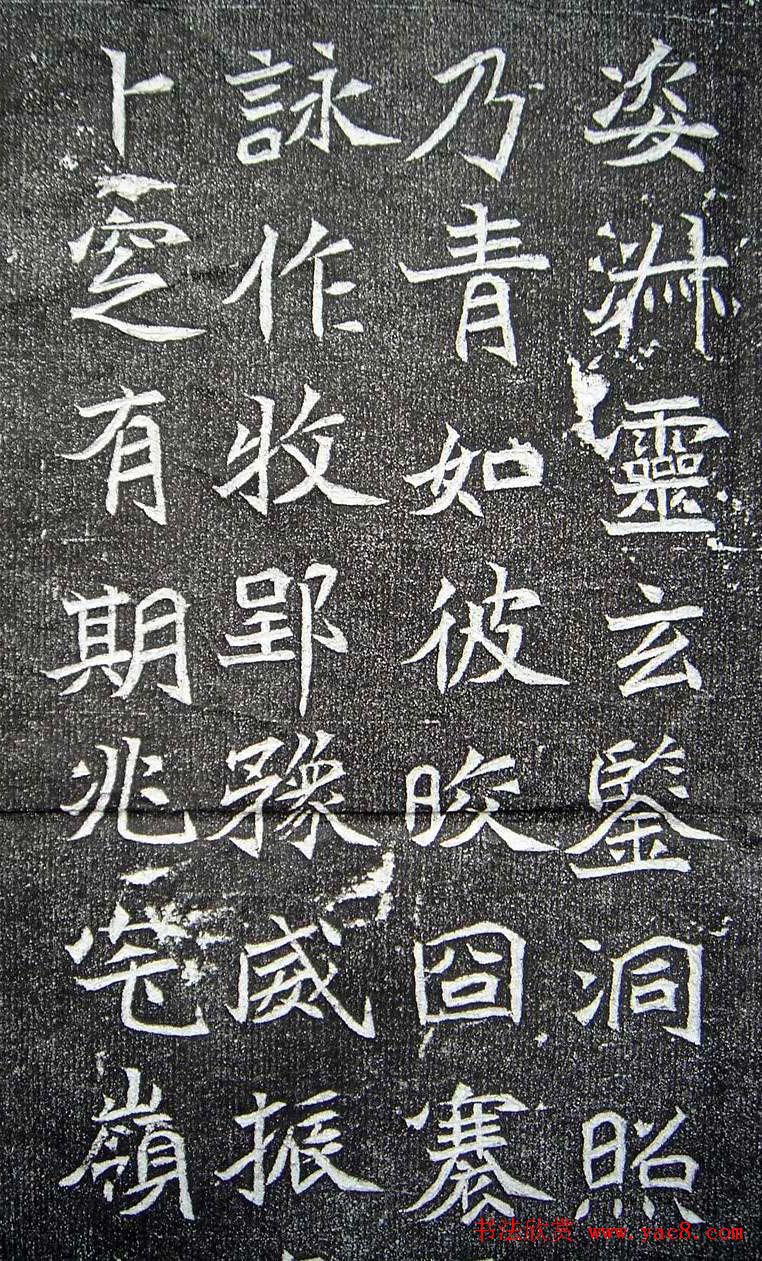 姿淵靈玄鑒洞照
乃青如彼晈囧褰
詠作牧郢豫威振
卜窆有期兆嶺
书法欣赏 www.yac8.com